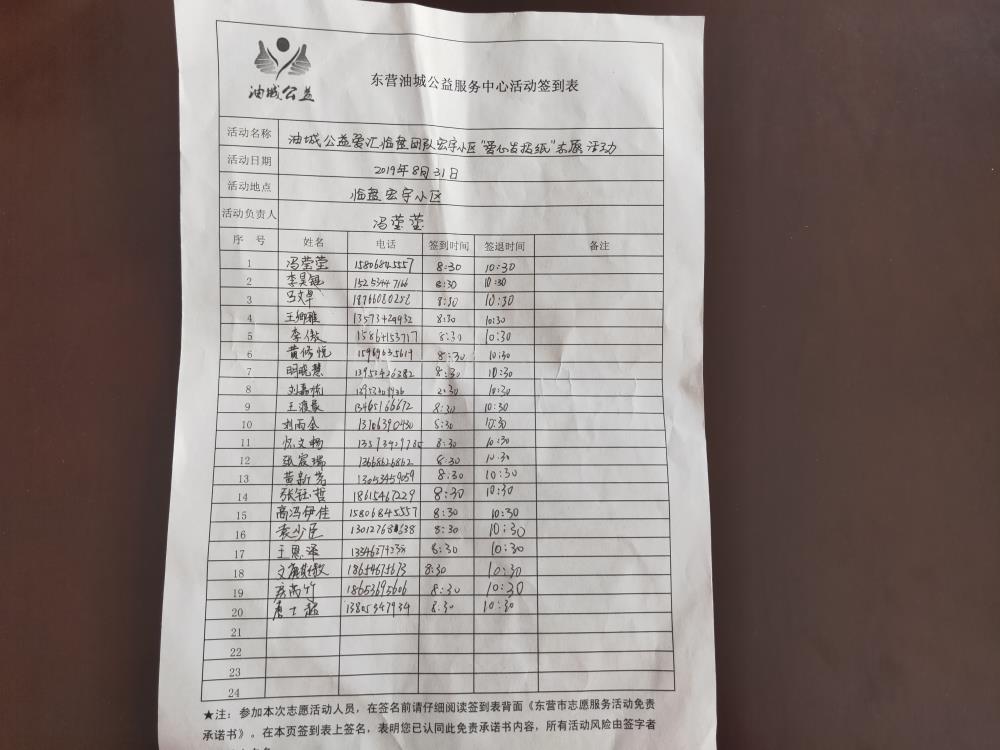 油城公益
东营油城公益服务中心活动签到表
活动名称 油城公益爱汇临盘团队宏宇小区“爱心发括纸”志愿活动
活动日期 2019年8月31日
活动地点 临盘宏宇小区
活动负责人 冯莹莹
序号 姓名 电话 签到时间 签退时间 备注
1 冯莹莹 15806845557 8:30 10:30
2 李昊钰 15253447166 8:30 10:30
3 马文旱 18766080258 8:30 10:30
4 王卿雅 13573429932 8:30 10:30
5 李傲 15864153717 8:30 10:30
6 黄修悦 15969635619 8:30 10:30
7 明晓慧 13953426382 8:30 10:30
8 刘嘉栋 8:30 10:30
9 王淮晨 13465166672 8:30 10:30
10 刘雨金 13106390430 8:30 10:30
11 怀文畅 8:30 10:30
12 张宸瑞 13668626862 8:30 10:30
13 黄新芳 13053459059 8:30 10:30
14 张钰哲 18615467229 8:30 10:30
15 高冯伊佳 15806845557 8:30 10:30
16 袁少臣 13012768638 8:30 10:30
17 王恩泽 8:30 10:30
18 18654675673 8:30 10:30
19 18653695606 8:30 10:30
20 13805347934 8:30 10:30
21
22
23
24
★注：参加本次志愿活动人员，在签名前请仔细阅读签到表背面《东营市志愿服务活动免责
承诺书》。在本页签到表上签名，表明您已认同此免责承诺书内容，所有活动风险由签字者